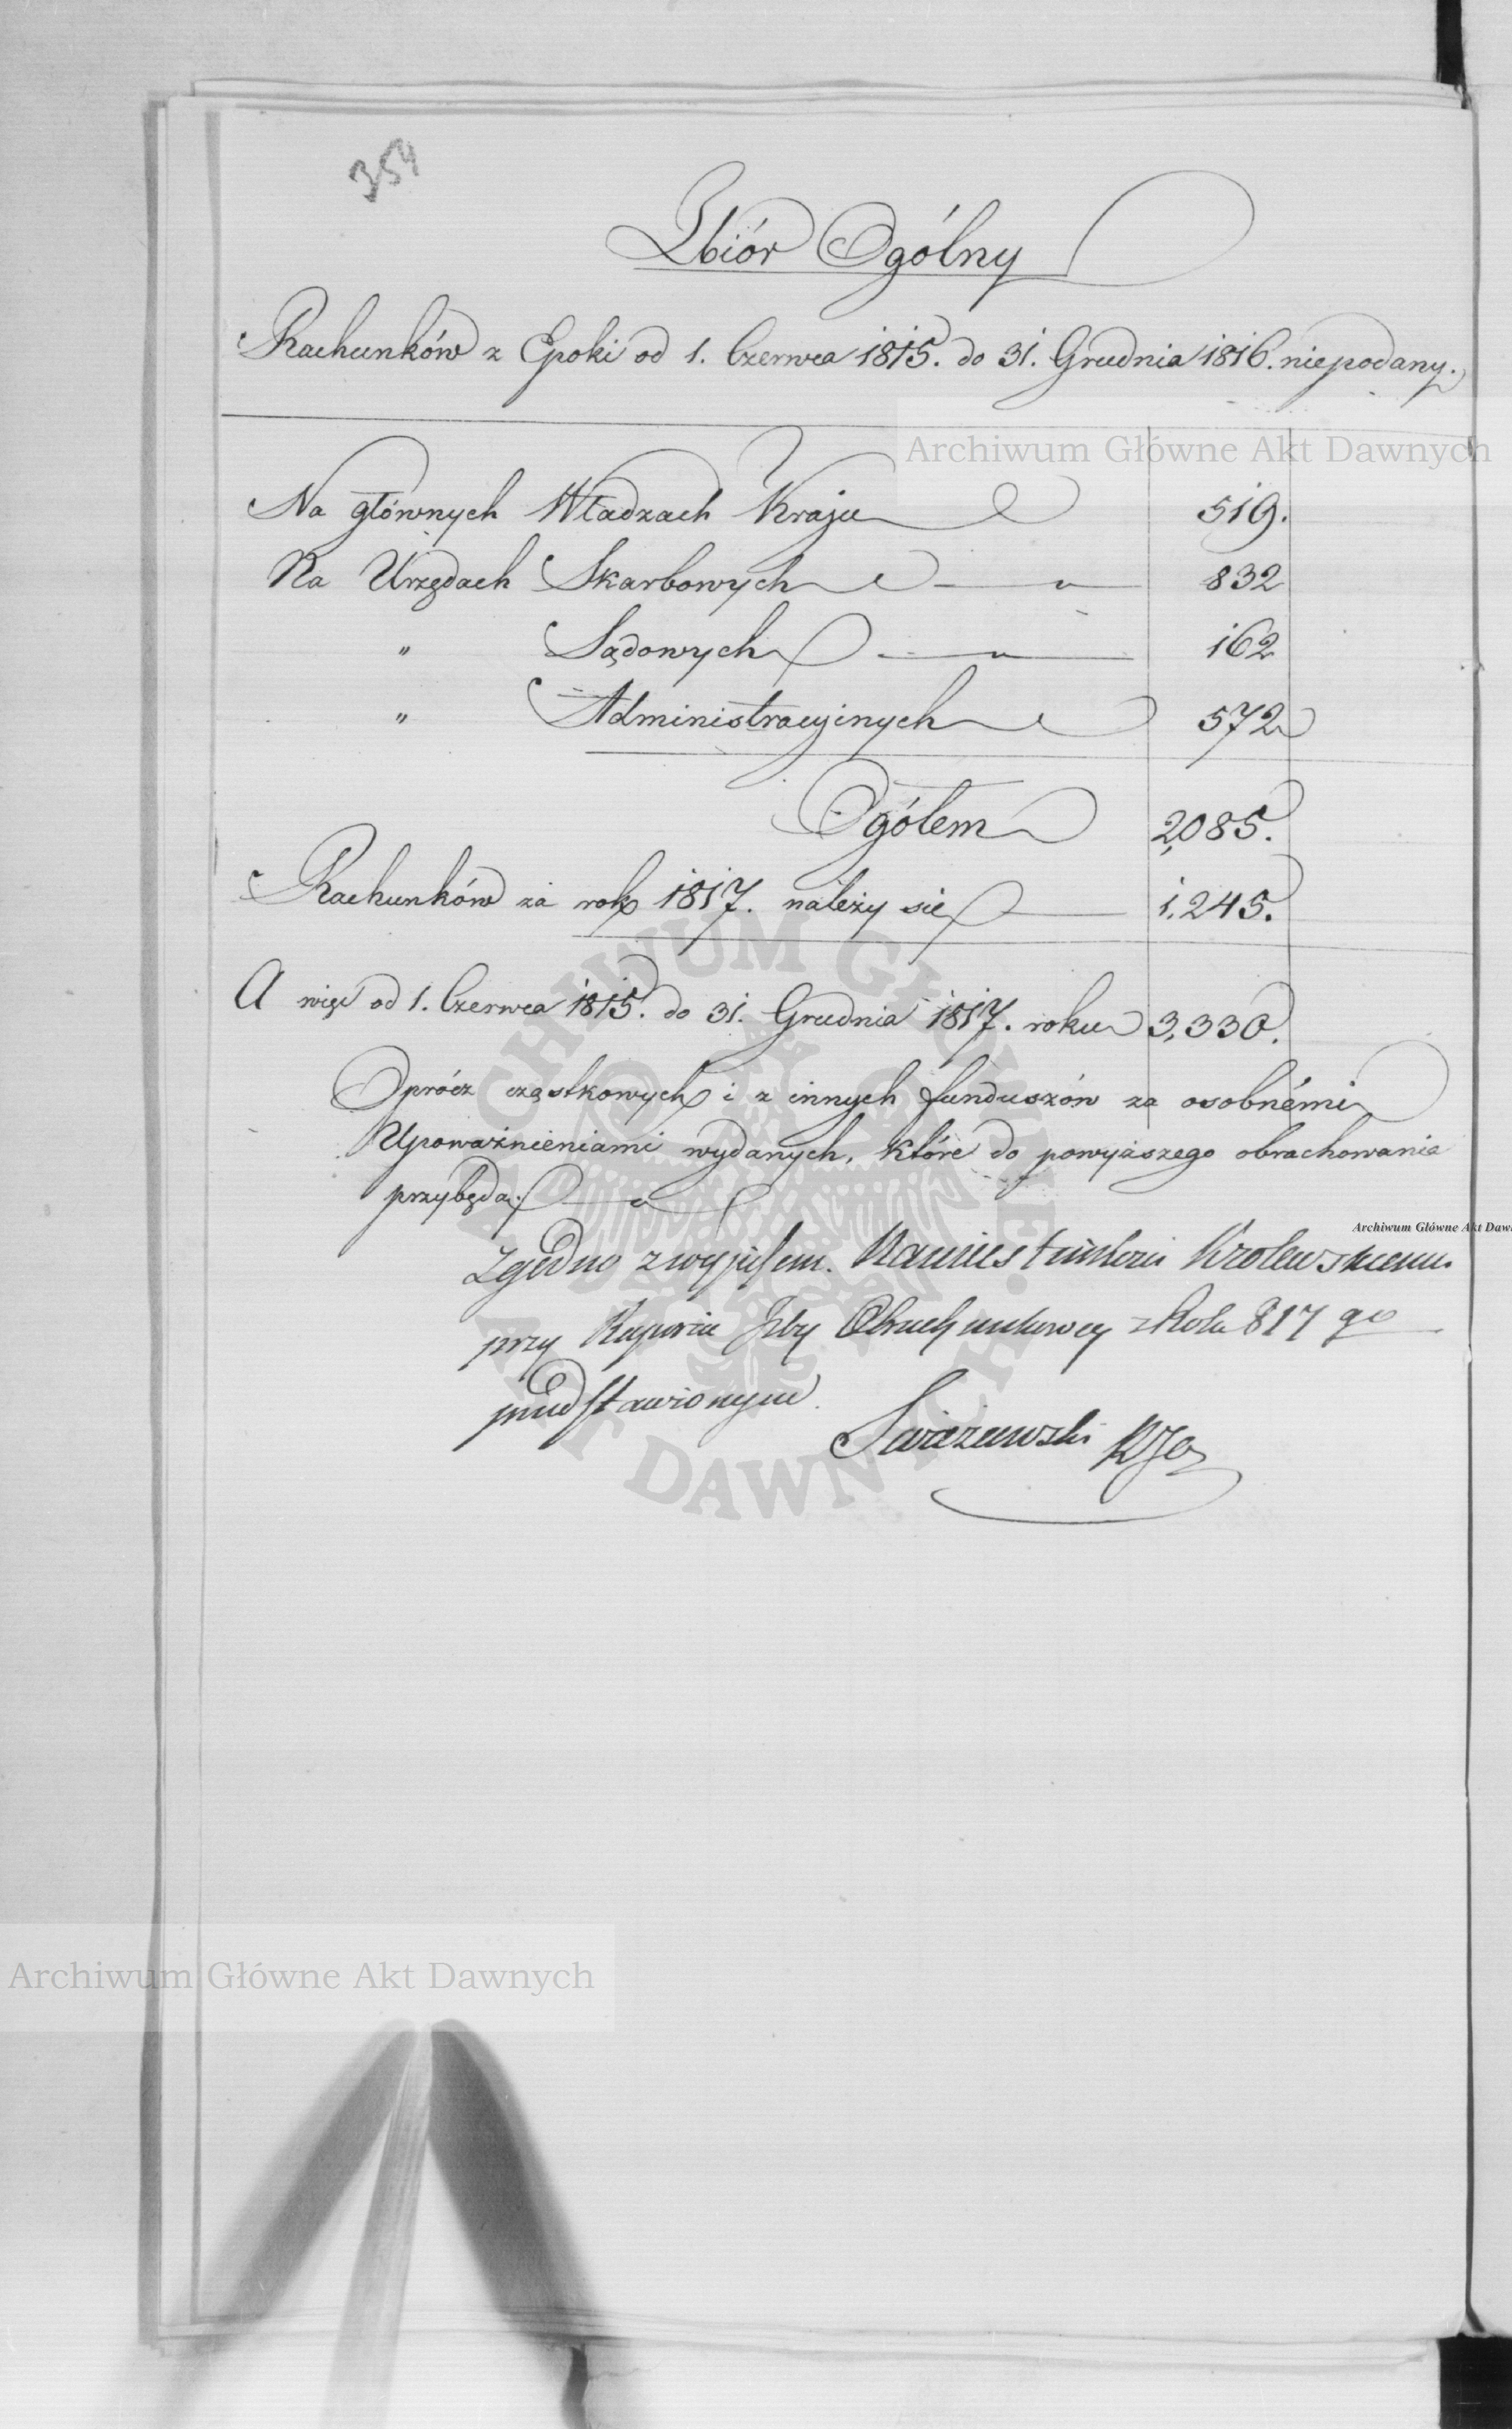 354
Zbiór Ogólny
Rachunków z Epoki od 1. Czerwca 1815. do 31. Grudnia 1816. niepodany.
Archiwum Główne Akt Dawnych
Na głównych Władzach Kraju 519.
Na Urzędach Skarbowych 832
" Sądowych 162
" Administracyjnych 572
Ogółem 2,085.
Rachunków za rok 1817. należy się 1.245.
A więc od 1. Czerwca 1815. do 31. Grudnia 1817. roku 3,330.
Oprócz cząstkowych i z innych funduszów za osobnémi
Upoważnieniami wydanych, które do powyższego obrachowania
przybędą.
Archiwum Główne Akt Daw
Zgodno z wypisem Namiestnikowi Krolewskiemu
przy Raporcie Jzby Obrachunkowey z Roku 817 go
przedstawionym
ARCHIWUM GŁÓWNE AKT DAWNYCH
Archiwum Główne Akt Dawnych